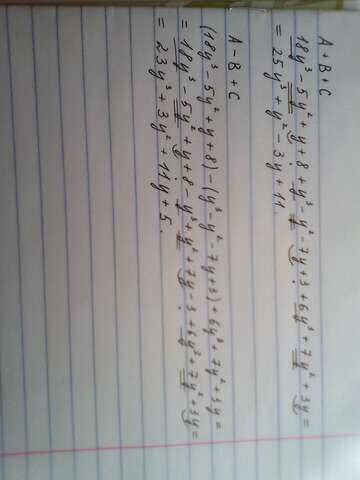 A + B + C
18y³ - 5y² + y + 8 + y³ - y² - 7y + 3 + 6y³ + 7y² + 3y =
= 25y³ + y² - 3y + 11.
A - B + C
(18y³ - 5y² + y + 8) - (y³ - y² - 7y + 3) + 6y³ + 7y² + 3y =
= 18y³ - 5y² + y + 8 - y³ + y² + 7y - 3 + 6y³ + 7y² + 3y =
= 23y³ + 3y² + 11y + 5.